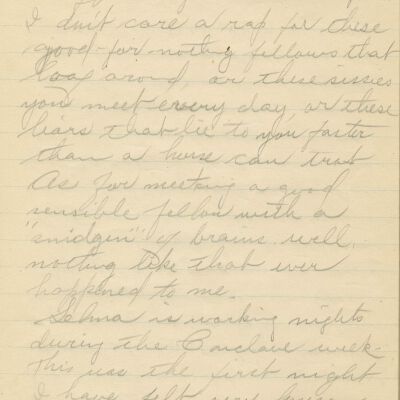 I don't care a rap for these
good-for-nothing fellows that
loaf around, or these sissies
you meet every day, or these
liars that lie to you faster
than a horse can trot
As for meeting a good
sensible fellow with a
"smidgin" of brains. well,
nothing like that ever
happened to me.
Selma is working nights
during the Conclave week.
This was the first night
I have felt very